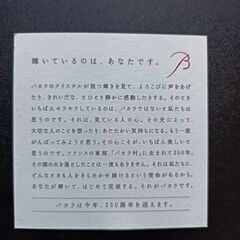 輝いているのは、あなたです。
バカラのクリスタルが放つ輝きを見て、よろこびに声をあげ
たり、きれいだな、とひとり静かに感動したりする。そのとき
いちばんキラキラしているのは、バカラではないと私たちは
思うのです。それは、見ている人の心。その光によって、
大切な人のことを想ったり、あたたかい気持ちになる。もう一度
がんばってみようと思う。その心が、いちばん美しいと
思うのです。フランスの東部、「バカラ村」に生まれて250年。
その窯の火を落としたことは一度もありません。それは私たちに、
どんなときも人をきらめかせ続けるという使命があるから。
あなたが輝いて、はじめて完成する。それがバカラです。
バカラは今年、250周年を迎えます。